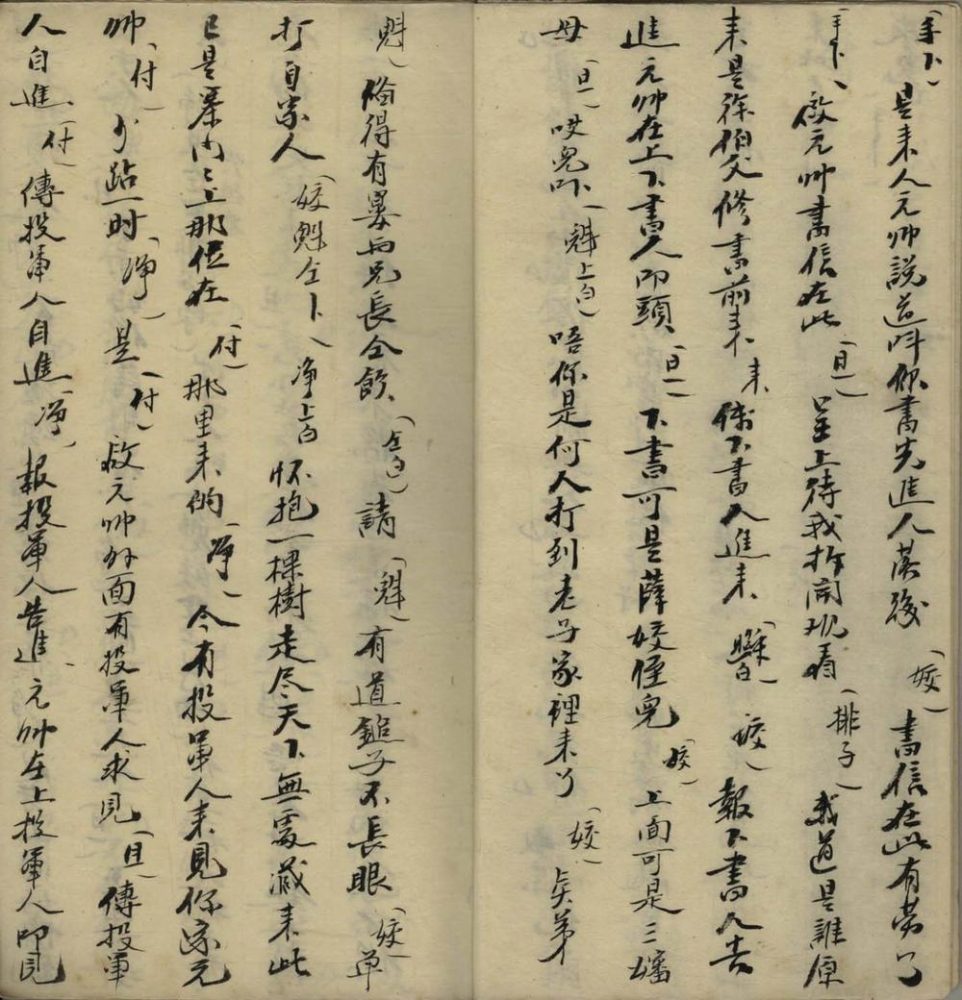 (手下)是來人元帅説道叫你書先進人落後(姣)書信在此有劳了
(手下)啟元帅書信在此(旦)呈上待我拆開現看(排子)我道是誰原
来是徐伯父修書前来来傳下書人進来(照白)(姣)報下書人告
進元帅在上下書人叩頭(旦)下書可是薛姣侄兒(姣)上面可是三嬸
母(旦)哎兒吓(魁上白)唔你是何人打到老子家裡来了(姣)矣弟
(魁)倫得有累与兄長仝飲(仝白)請(魁)有道鎚子不長眼(姣)单
打自家人(姣魁仝下)净上白怀抱一棵樹走尽天下無處藏来此
已是寨内々上那位在(付)那里来的(净)今有投軍人来見你家元
帅(付)少跕一时(净)是(付)啟元帅外面有投軍人求見(旦)傳投軍
人自進(付)傳投軍人自進(净)報投軍人告進元帅在上投軍人叩見